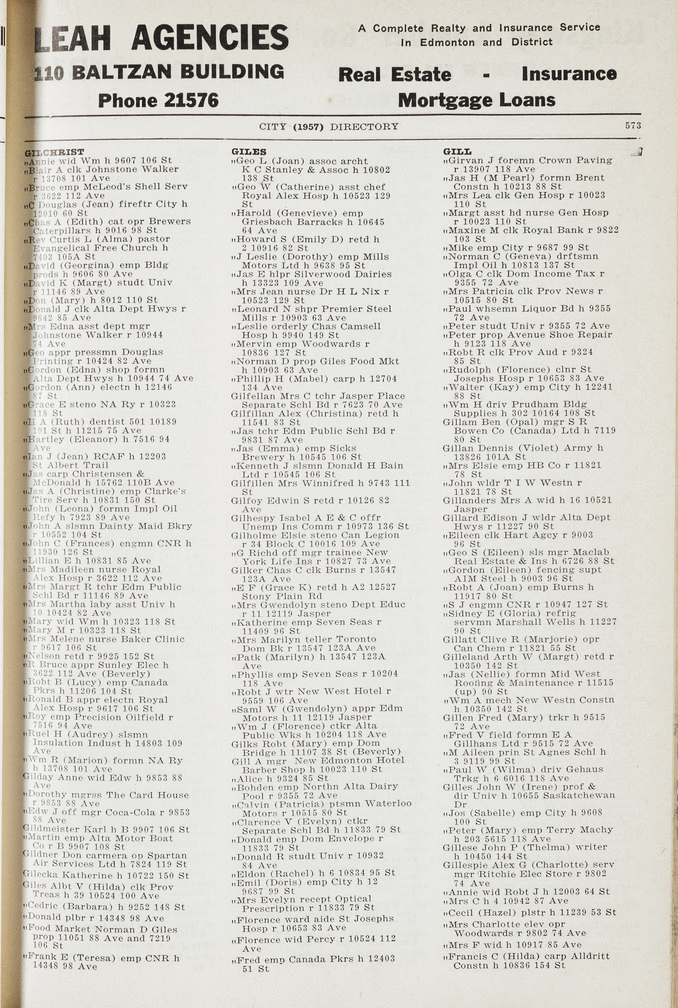 LEAH AGENCIES
110 BALTZAN BUILDING
Phone 21576
A Complete Realty and Insurance Service
In Edmonton and District
Real Estate - Insurance
Mortgage Loans
CITY (1957) DIRECTORY 573
GILCHRIST
"Annie wid Wm h 9607 106 St
"Blair A clk Johnstone Walker
r 13708 101 Ave
"Bruce emp McLeod's Shell Serv
r 3622 112 Ave
"C Douglas (Jean) fireftr City h
12010 60 St
"Chas A (Edith) cat opr Brewers
Caterpillars h 9016 98 St
"Rev Curtis L (Alma) pastor
Evangelical Free Church h
7403 105A St
"David (Georgina) emp Bldg
prods h 9606 80 Ave
"David K (Margt) studt Univ
r 11146 89 Ave
"Don (Mary) h 8012 110 St
"Donald J clk Alta Dept Hwys r
9842 85 Ave
"Mrs Edna asst dept mgr
Johnstone Walker r 10944
74 Ave
"Geo appr pressmn Douglas
Printing r 10424 82 Ave
"Gordon (Edna) shop formn
Alta Dept Hwys h 10944 74 Ave
"Gordon (Ann) electn h 12146
87 St
"Grace E steno NA Ry r 10323
118 St
"H A (Ruth) dentist 501 10189
101 St h 11215 75 Ave
"Hartley (Eleanor) h 7516 94
Ave
"Ian J (Jean) RCAF h 12203
St Albert Trail
"Jas carp Christensen &
McDonald h 15762 110B Ave
"Jas A (Christine) emp Clarke's
Tire Serv h 10831 150 St
"John (Leona) formn Impl Oil
Refy h 7923 89 Ave
"John A slsmn Dainty Maid Bkry
r 10552 104 St
"John C (Frances) engmn CNR h
11930 126 St
"Lillian E h 10831 85 Ave
"Mrs Madileen nurse Royal
Alex Hosp r 3622 112 Ave
"Mrs Margt R tchr Edm Public
Schl Bd r 11146 89 Ave
"Mrs Martha laby asst Univ h
10 10424 82 Ave
"Mary wid Wm h 10323 118 St
"Mary M r 10323 118 St
"Mrs Melene nurse Baker Clinic
r 9617 106 St
"Nelson retd r 9925 152 St
"R Bruce appr Sunley Elec h
3622 112 Ave (Beverly)
"Robt B (Lucy) emp Canada
Pkrs h 11206 104 St
"Ronald B appr electn Royal
Alex Hosp r 9617 106 St
"Roy emp Precision Oilfield r
7516 94 Ave
"Ruel H (Audrey) slsmn
Insulation Indust h 14803 109
Ave
"Wm R (Marion) formn NA Ry
h 13708 101 Ave
Gilday Anne wid Edw h 9853 88
Ave
"Dorothy mgrss The Card House
r 9853 88 Ave
"Edw J off mgr Coca-Cola r 9853
88 Ave
Gildmeister Karl h B 9907 106 St
"Martin emp Alta Motor Boat
Co r B 9907 108 St
Gildner Don carmera op Spartan
Air Services Ltd h 7824 119 St
Gilecka Katherine h 10722 150 St
Giles Albt V (Hilda) clk Prov
Treas h 39 10524 100 Ave
"Cedric (Barbara) h 9252 148 St
"Donald plbr r 14348 98 Ave
"Food Market Norman D Giles
prop 11051 88 Ave and 7219
106 St
"Frank E (Teresa) emp CNR h
14348 98 Ave
GILES
"Geo L (Joan) assoc archt
K C Stanley & Assoc h 10802
138 St
"Geo W (Catherine) asst chef
Royal Alex Hosp h 10523 129
St
"Harold (Genevieve) emp
Griesbach Barracks h 10645
64 Ave
"Howard S (Emily D) retd h
2 10916 82 St
"J Leslie (Dorothy) emp Mills
Motors Ltd h 9638 95 St
"Jas E hlpr Silverwood Dairies
h 13323 109 Ave
"Mrs Jean nurse Dr H L Nix r
10523 129 St
"Leonard N shpr Premier Steel
Mills r 10903 63 Ave
"Leslie orderly Chas Camsell
Hosp h 9940 149 St
"Mervin emp Woodwards r
10836 127 St
"Norman D prop Giles Food Mkt
h 10903 63 Ave
"Phillip H (Mabel) carp h 12704
134 Ave
Gilfelian Mrs C tchr Jasper Place
Separate Schl Bd r 7623 70 Ave
Gilfillan Alex (Christina) retd h
11541 83 St
"Jas tchr Edm Public Schl Bd r
9831 87 Ave
"Jas (Emma) emp Sicks
Brewery h 10545 106 St
"Kenneth J slsmn Donald H Bain
Ltd r 10545 106 St
Gilfillen Mrs Winnifred h 9743 111
St
Gilfoy Edwin S retd r 10126 82
Ave
Gilhespy Isabel A E & C offr
Unemp Ins Comm r 10973 136 St
Gilholme Elsie steno Can Legion
r 34 Block C 10016 109 Ave
"G Richd off mgr trainee New
York Life Ins r 10827 73 Ave
Gilker Chas C clk Burns r 13547
123A Ave
"E F (Grace K) retd h A2 12527
Stony Plain Rd
"Mrs Gwendolyn steno Dept Educ
r 11 12119 Jasper
"Katherine emp Seven Seas r
11409 96 St
"Mrs Marilyn teller Toronto
Dom Bk r 13547 123A Ave
"Patk (Marilyn) h 13547 123A
Ave
"Phyllis emp Seven Seas r 10204
118 Ave
"Robt J wtr New West Hotel r
9559 106 Ave
"Saml W (Gwendolyn) appr Edm
Motors h 11 12119 Jasper
"Wm J (Florence) ctkr Alta
Public Wks h 10204 118 Ave
Gilks Robt (Mary) emp Dom
Bridge h 11107 38 St (Beverly)
Gill A mgr New Edmonton Hotel
Barber Shop h 10023 110 St
"Alice h 9324 85 St
"Bohden emp Northn Alta Dairy
Pool r 9355 72 Ave
"Calvin (Patricia) ptsmn Waterloo
Motors r 10515 80 St
"Clarence V (Evelyn) ctkr
Separate Schl Bd h 11833 79 St
"Donald emp Dom Envelope r
11833 79 St
"Donald R studt Univ r 10932
84 Ave
"Eldon (Rachel) h 6 10834 95 St
"Emil (Doris) emp City h 12
9687 99 St
"Mrs Evelyn recept Optical
Prescription r 11833 79 St
"Florence ward aide St Josephs
Hosp r 10653 83 Ave
"Florence wid Percy r 10524 112
Ave
"Fred emp Canada Pkrs h 12403
51 St
GILL
"Girvan J foremn Crown Paving
r 13907 118 Ave
"Jas H (M Pearl) formn Brent
Constn h 10213 88 St
"Mrs Lea clk Gen Hosp r 10023
110 St
"Margt asst hd nurse Gen Hosp
r 10023 110 St
"Maxine M clk Royal Bank r 9822
103 St
"Mike emp City r 9687 99 St
"Norman C (Geneva) drftsmn
Impl Oil h 10813 137 St
"Olga C clk Dom Income Tax r
9355 72 Ave
"Mrs Patricia clk Prov News r
10515 80 St
"Paul whsemn Liquor Bd h 9355
72 Ave
"Peter studt Univ r 9355 72 Ave
"Peter prop Avenue Shoe Repair
h 9123 118 Ave
"Robt R clk Prov Aud r 9324
85 St
"Rudolph (Florence) clnr St
Josephs Hosp r 10653 83 Ave
"Walter (Kay) emp City h 12241
88 St
"Wm H driv Prudham Bldg
Supplies h 302 10164 108 St
Gillam Ben (Opal) mgr S R
Bowen Co (Canada) Ltd h 7119
80 St
Gillan Dennis (Violet) Army h
13826 101A St
"Mrs Elsie emp HB Co r 11821
78 St
"John wldr T I W Westn r
11821 78 St
Gillanders Mrs A wid h 16 10521
Jasper
Gillard Edison J wldr Alta Dept
Hwys r 11227 90 St
"Eileen clk Hart Agcy r 9003
96 St
"Geo S (Eileen) sls mgr Maclab
Real Estate & Ins h 6726 88 St
"Gordon (Eileen) fencing supt
AIM Steel h 9003 96 St
"Robt A (Joan) emp Burns h
11917 80 St
"S J engmn CNR r 10947 127 St
"Sidney E (Gloria) refrig
servmn Marshall Wells h 11227
90 St
Gillatt Clive R (Marjorie) opr
Can Chem r 11821 55 St
Gilleland Arth W (Margt) retd r
10350 142 St
"Jas (Nellie) formn Mid West
Rooing & Maintenance r 11515
(up) 90 St
"Wm A mech New Westn Constn
h 10350 142 St
Gillen Fred (Mary) trkr h 9515
72 Ave
"Fred V field formn E A
Gillhans Ltd r 9515 72 Ave
"M Aileen prin St Agnes Schl h
3 9119 99 St
"Paul W (Wilma) driv Gehaus
Trkg h 6 6016 118 Ave
Gilles John W (Irene) prof &
dir Univ h 10655 Saskatchewan
Dr
"Jos (Sabelle) emp City h 9608
100 St
"Peter (Mary) emp Terry Machy
h 203 5615 118 Ave
Gillese John P (Thelma) writer
h 10450 144 St
Gillespie Alex G (Charlotte) serv
mgr Ritchie Elec Store r 9802
74 Ave
"Annie wid Robt J h 12003 64 St
"Mrs C h 4 10942 87 Ave
"Cecil (Hazel) plstr h 11239 53 St
"Mrs Charlotte elev opr
Woodwards r 9802 74 Ave
"Mrs F wid h 10917 85 Ave
"Francis C (Hilda) carp Alldritt
Constn h 10836 154 St